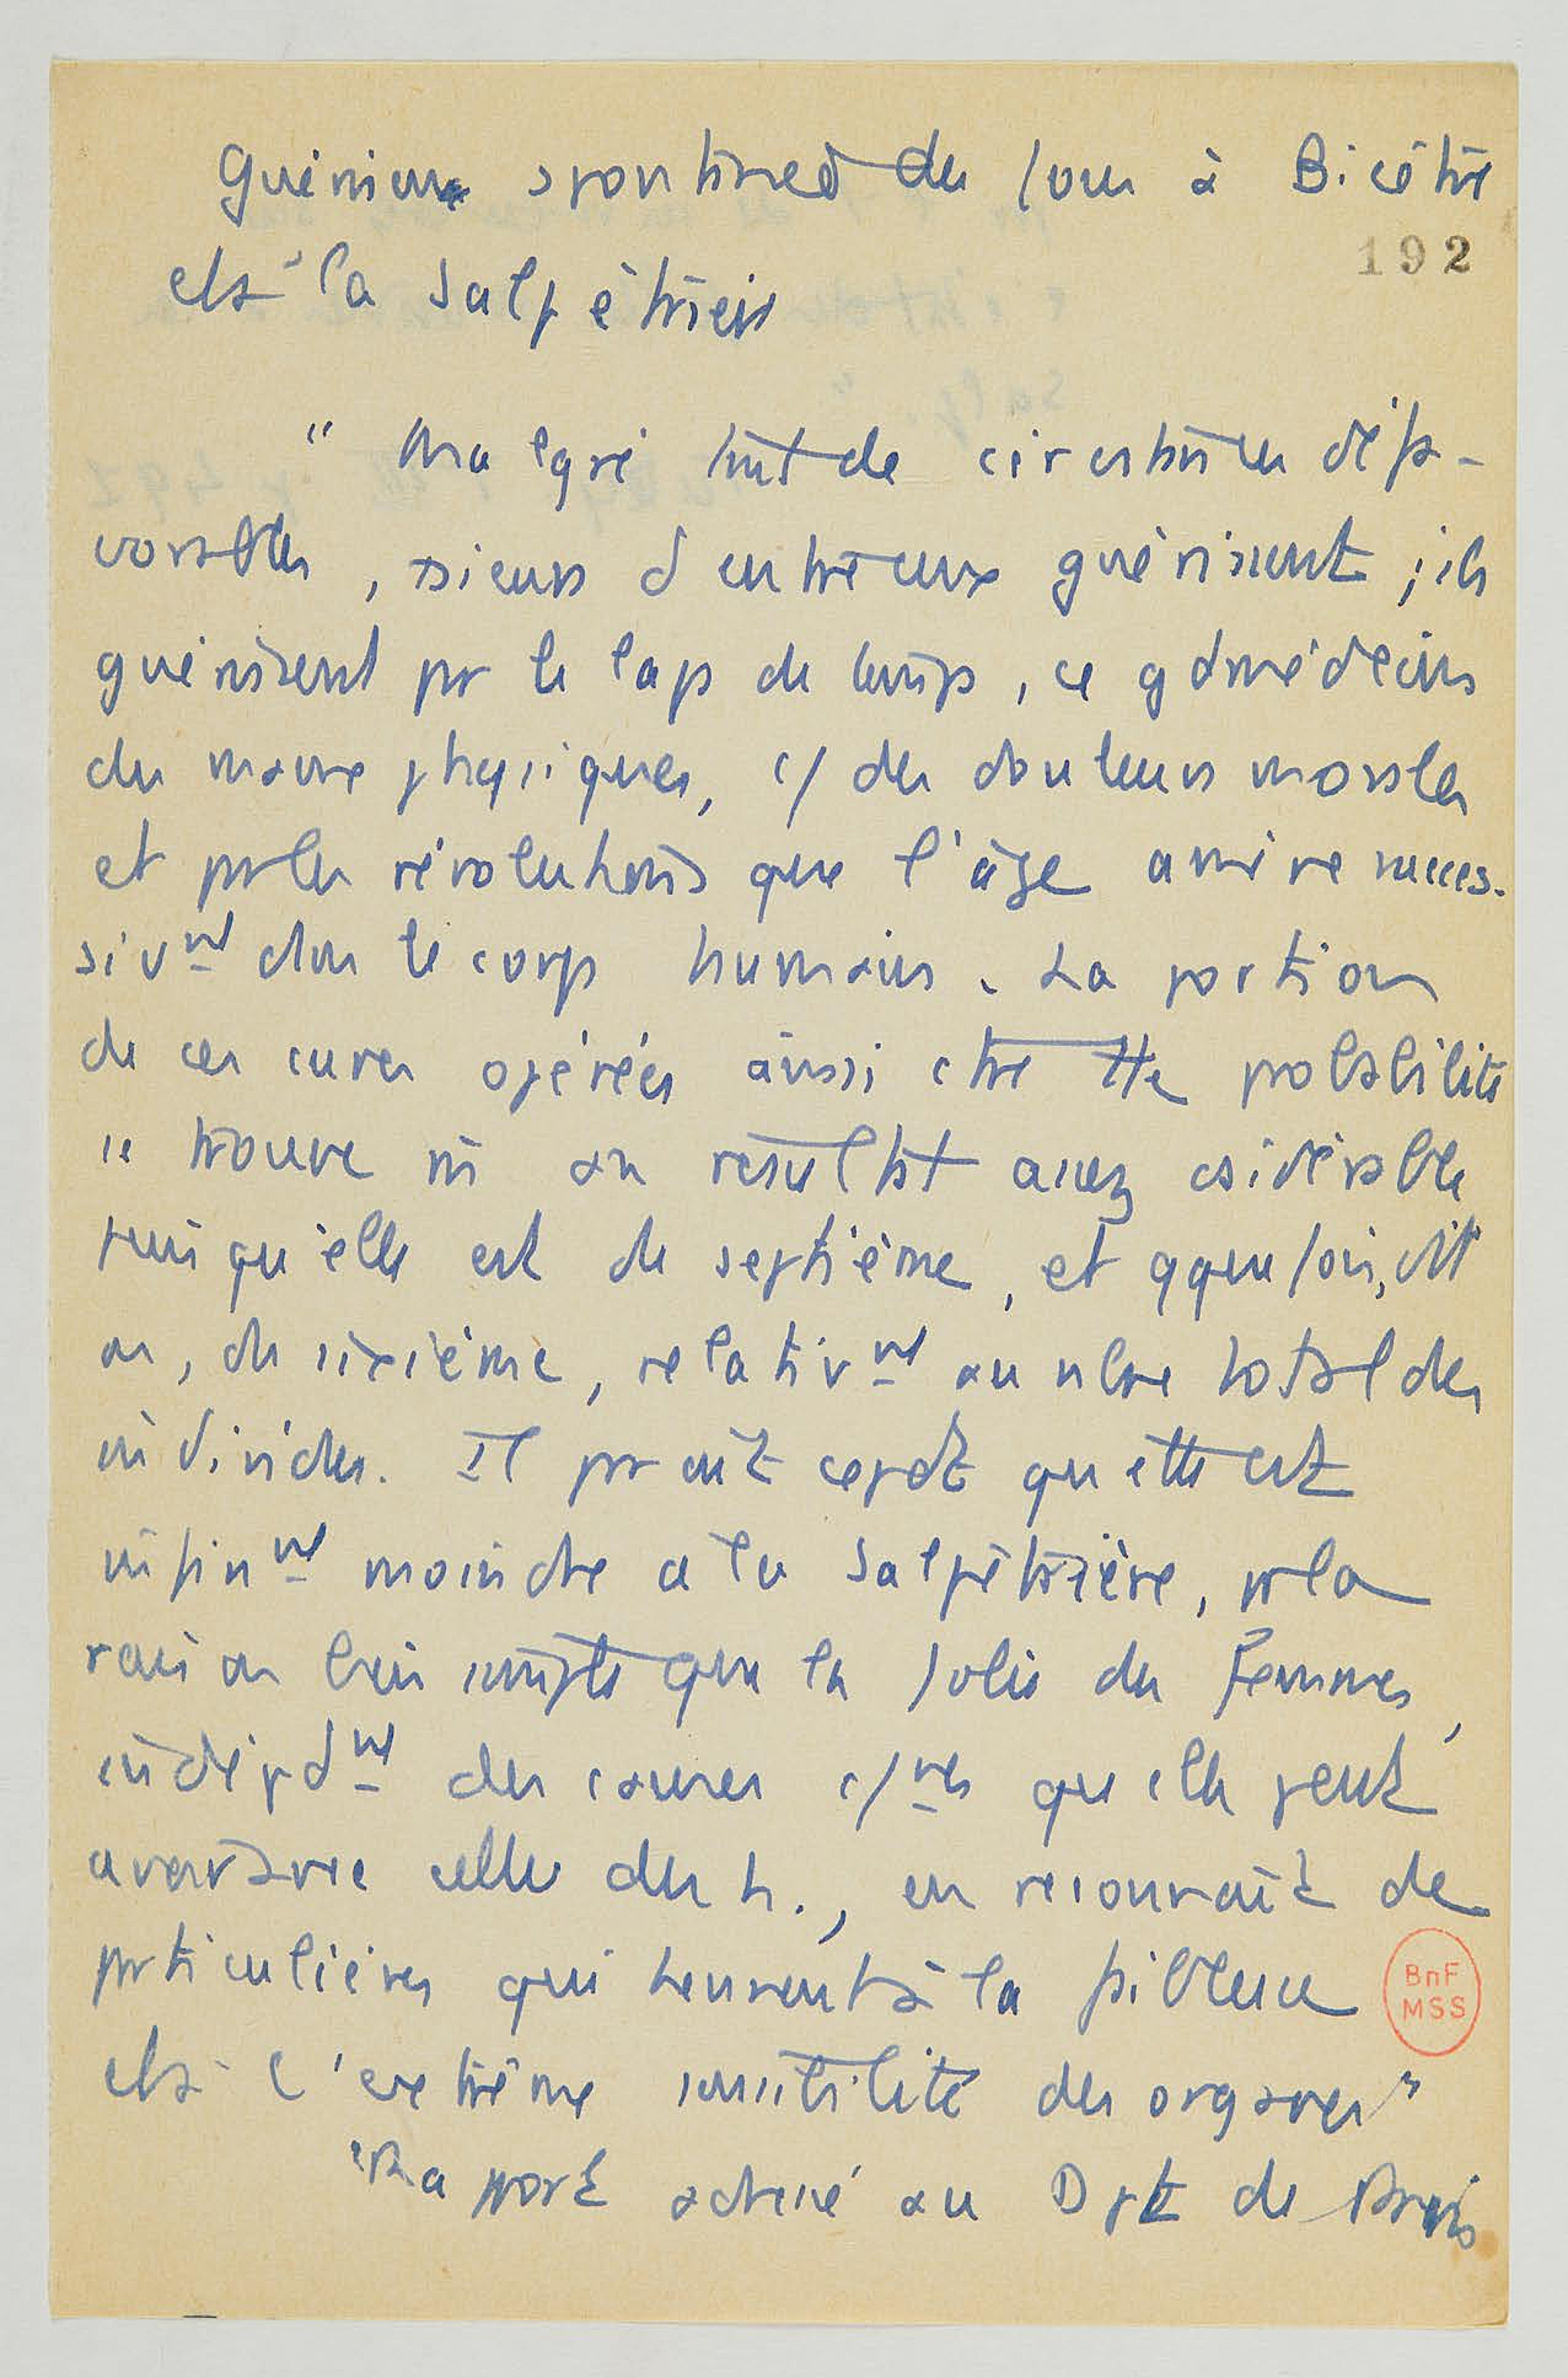 Guérisons spontanées des fous à Bicêtre
192
et à la Salpêtrière
" Malgré tant de circonstances défa-
vorables, +sieurs d'entre eux guérissent ; ils
guérissent par le laps de temps, ce gd médecin
des maux physiques, c/ des douleurs morales
et par les révolutions que l'âge amène succes-
sivmt dans le corps humain. La portion
de ces cures opérées ainsi ctre tte probabilité
se trouve ns un résultat assez csidérable
puisqu'elle est du septième, et qquefois, dit
on, du sixième, relativmt au nbre total des
individus. Il paraît cepdt qu'elle est
infinmt moindre à la Salpêtrière, par la
raison bien simple que la folie des Femmes,
indépdmt des causes c/nes qu'elle peut
avoir avec celle des h., en reconnaît de
particulières qui tiennent à la faiblesse
et à l'extrême sensibilité des organes "
"Rapport adressé au Dpt de Paris
BnF
MSS